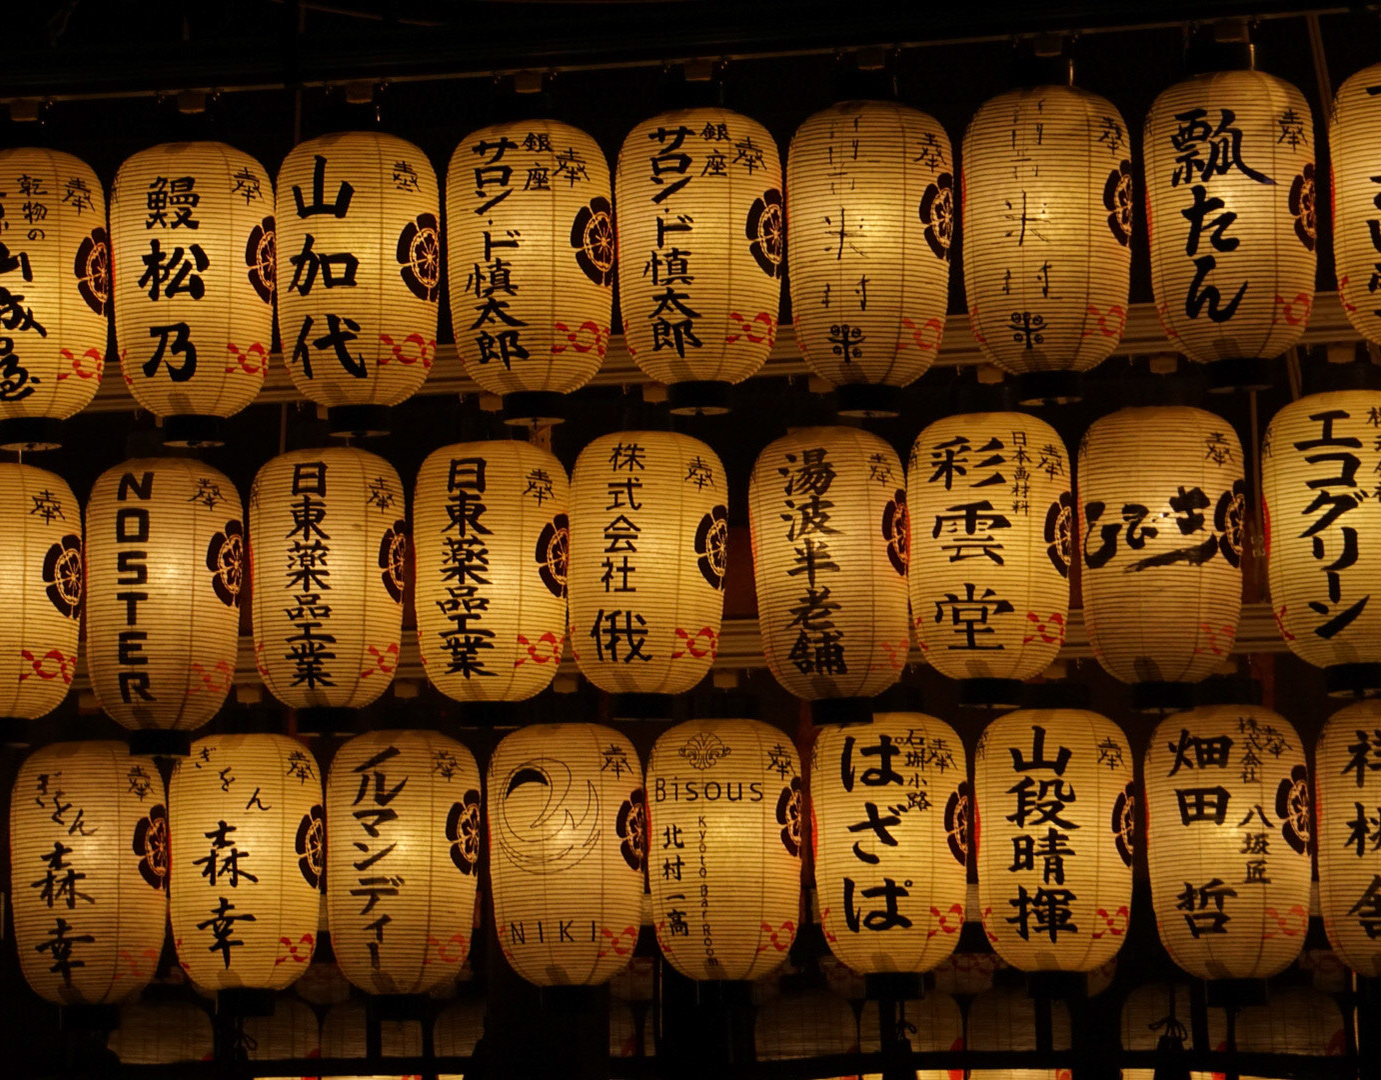 奉
乾物の
山城屋
奉
鰻松乃
奉
山加代
奉
銀座
サロン・ド慎太郎
奉
銀座
サロン・ド慎太郎
奉
米村
奉
米村
奉
瓢たん
奉
奉
NOSTER
奉
日東薬品工業
奉
日東薬品工業
奉
株式会社
俄
奉
湯波半老舗
奉
日本画材料
彩雲堂
奉
エコグリーン
奉
ぎをん
森幸
奉
ぎをん
森幸
奉
イルマンディー
奉
NIKI
奉
Bisous
Kyoto Bar Room
北村一高
奉
石塀小路
ぱざぱ
奉
山段晴揮
奉
株式会社
八坂匠
畑田哲